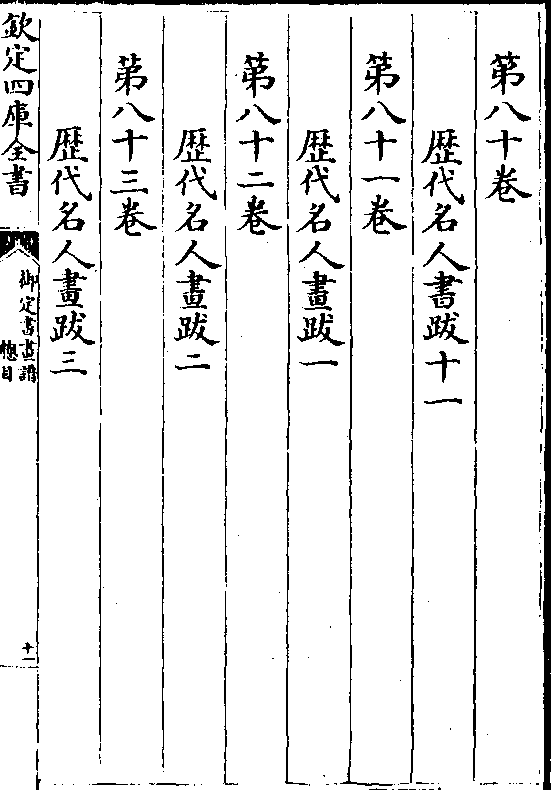 第八十卷
歴代名人書跋十一
第八十一卷
歴代名人畫跋一
第八十二卷
歴代名人畫跋二
第八十三卷
歴代名人畫跋三
欽定四庫全書
御定書畫譜
總目
十一